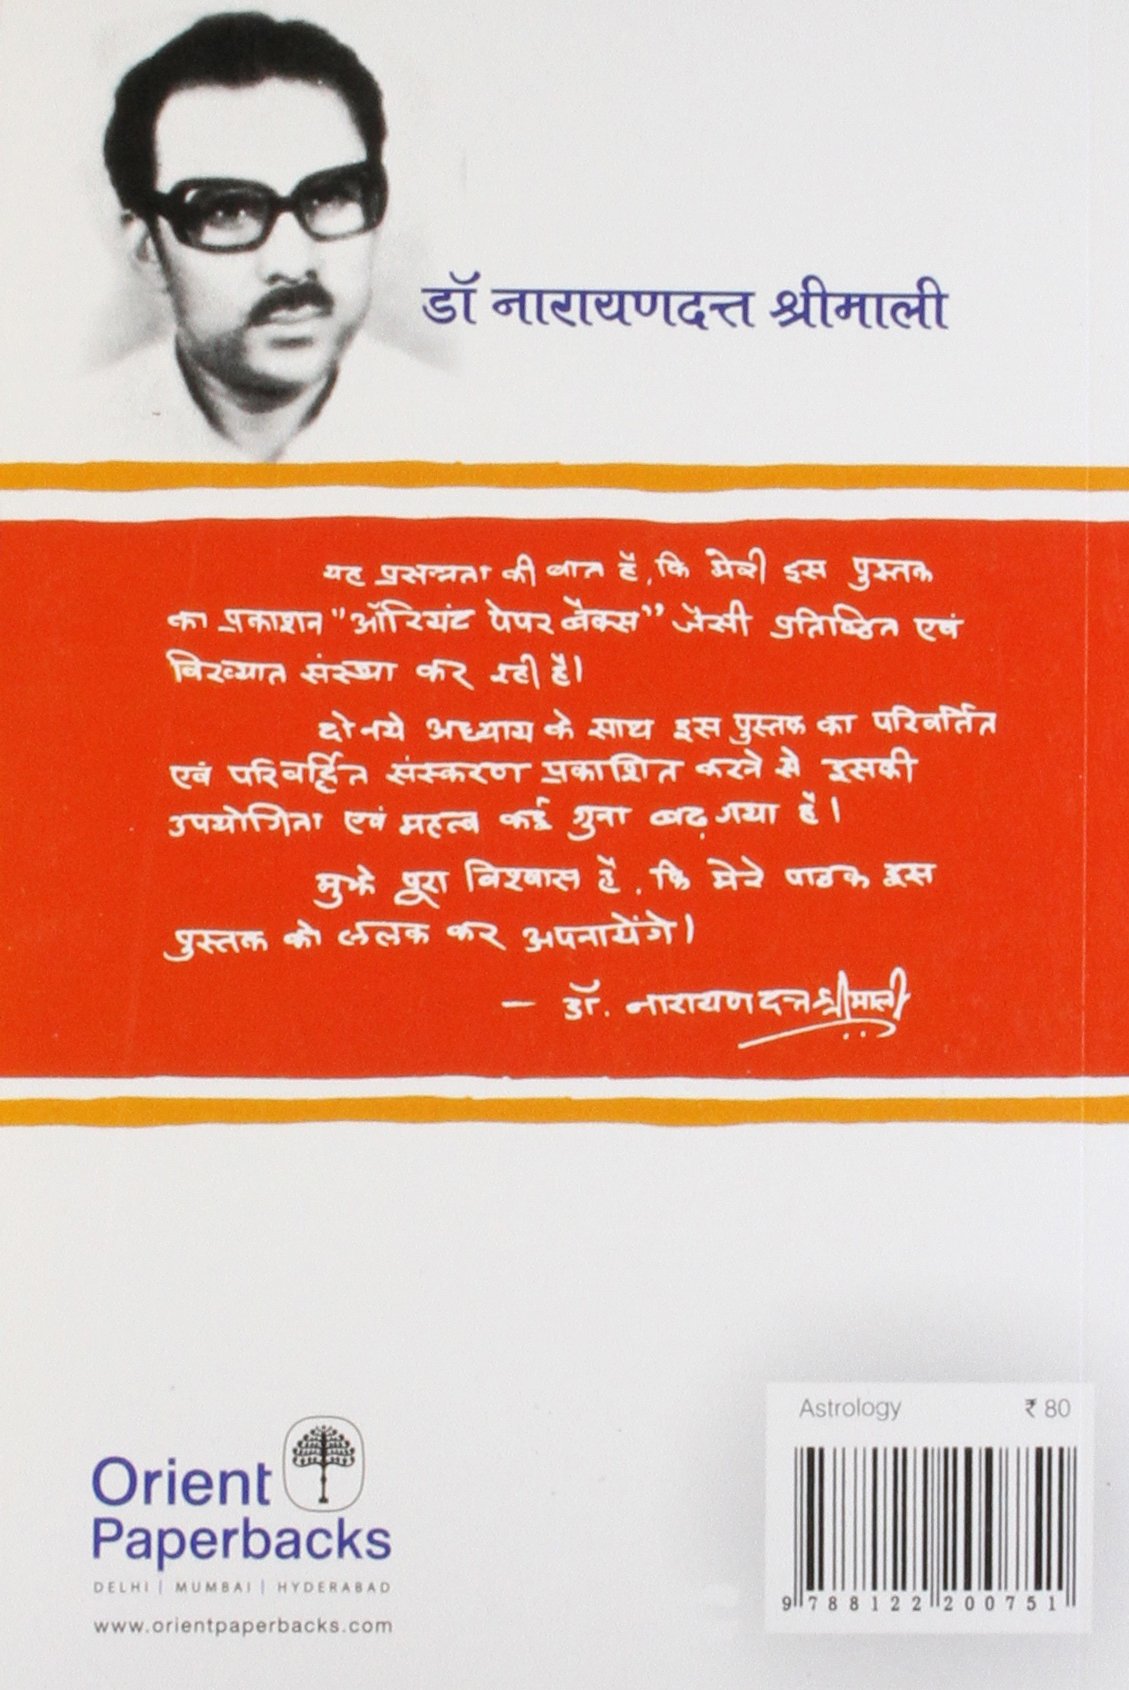 डॉ नारायणदत्त श्रीमाली
यह प्रसन्नता की बात है, कि मेरी इस पुस्तक
का प्रकाशन "ऑरियंट पेपर बैक्स" जैसी प्रतिष्ठित एवं
विख्यात संस्था कर रही है।
दो नये अध्याय के साथ इस पुस्तक का परिवर्तित
एवं परिवर्द्धित संस्करण प्रकाशित करने से इसकी
उपयोगिता एवं महत्व कई गुना बढ़ गया है।
मुझे पूरा विश्वास है, कि मेरे पाठक इस
पुस्तक को ललक कर अपनायेंगे।
— डॉ. नारायणदत्त श्रीमाली
Astrology ₹ 80
Orient
Paperbacks
DELHI | MUMBAI | HYDERABAD
www.orientpaperbacks.com
9 788122 200751